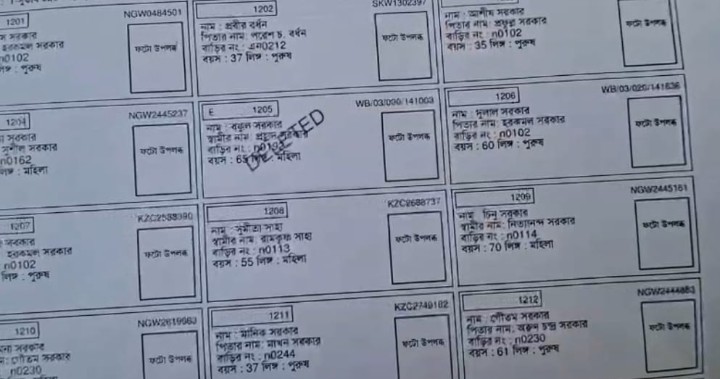 1201
NGW0484501
সরকার
সরকার
n0102
: পুরুষ
ফটো উপলব্ধ
1202
SKW1302397
নাম : প্রবীর বর্ধন
পিতার নাম: পরেশ চ. বর্ধন
বাড়ির নং : এন0212
বয়স : 37 লিঙ্গ : পুরুষ
ফটো উপলব্ধ
নাম : আশীষ সরকার
পিতার নাম: প্রফুল্ল সরকার
বাড়ির নং : n0102
বয়স : 35 লিঙ্গ : পুরুষ
ফটো উপলব্ধ
1204
NGW2445237
সরকার
সুশীল সরকার
n0162
লিঙ্গ : মহিলা
ফটো উপলব্ধ
E
1205
WB/03/090/141003
নাম : বকুল সরকার
স্বামীর নাম: প্রফুল্ল সরকার
বাড়ির নং : n0102
বয়স : 65 লিঙ্গ : মহিলা
DELETED
ফটো উপলব্ধ
1206
WB/03/020/141636
নাম : দুলাল সরকার
পিতার নাম: হরকমল সরকার
বাড়ির নং : n0102
বয়স : 60 লিঙ্গ : পুরুষ
ফটো উপলব্ধ
1207
KZC2588390
সরকার
হরকমল সরকার
n0102
লিঙ্গ : পুরুষ
ফটো উপলব্ধ
1208
KZC2688737
নাম : সুমীত্রা সাহা
স্বামীর নাম: রামকৃষ্ণ সাহা
বাড়ির নং : n0113
বয়স : 55 লিঙ্গ : মহিলা
ফটো উপলব্ধ
1209
NGW2445161
নাম : চিনু সরকার
স্বামীর নাম: নিত্যানন্দ সরকার
বাড়ির নং : n0114
বয়স : 70 লিঙ্গ : মহিলা
ফটো উপলব্ধ
1210
NGW2619963
সরকার
গৌতম সরকার
n0230
ফটো উপলব্ধ
1211
KZC2749182
নাম : মানিক সরকার
পিতার নাম: মাখন সরকার
বাড়ির নং : n0244
বয়স : 37 লিঙ্গ : পুরুষ
ফটো উপলব্ধ
1212
NGW2444883
নাম : গৌতম সরকার
পিতার নাম: অরুন চন্দ্র সরকার
বাড়ির নং : n0230
বয়স : 61 লিঙ্গ : পুরুষ
ফটো উপলব্ধ